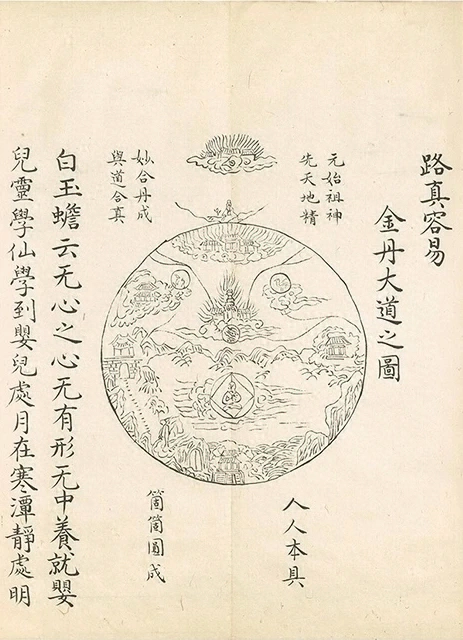 路真容易
金丹大道之圖
元始祖神
先天地精
妙合丹成
與道合真
人人本具
箇箇圓成
白玉蟾云无心之心无有形无中養就嬰
兒靈學仙學到嬰兒處月在寒潭靜處明